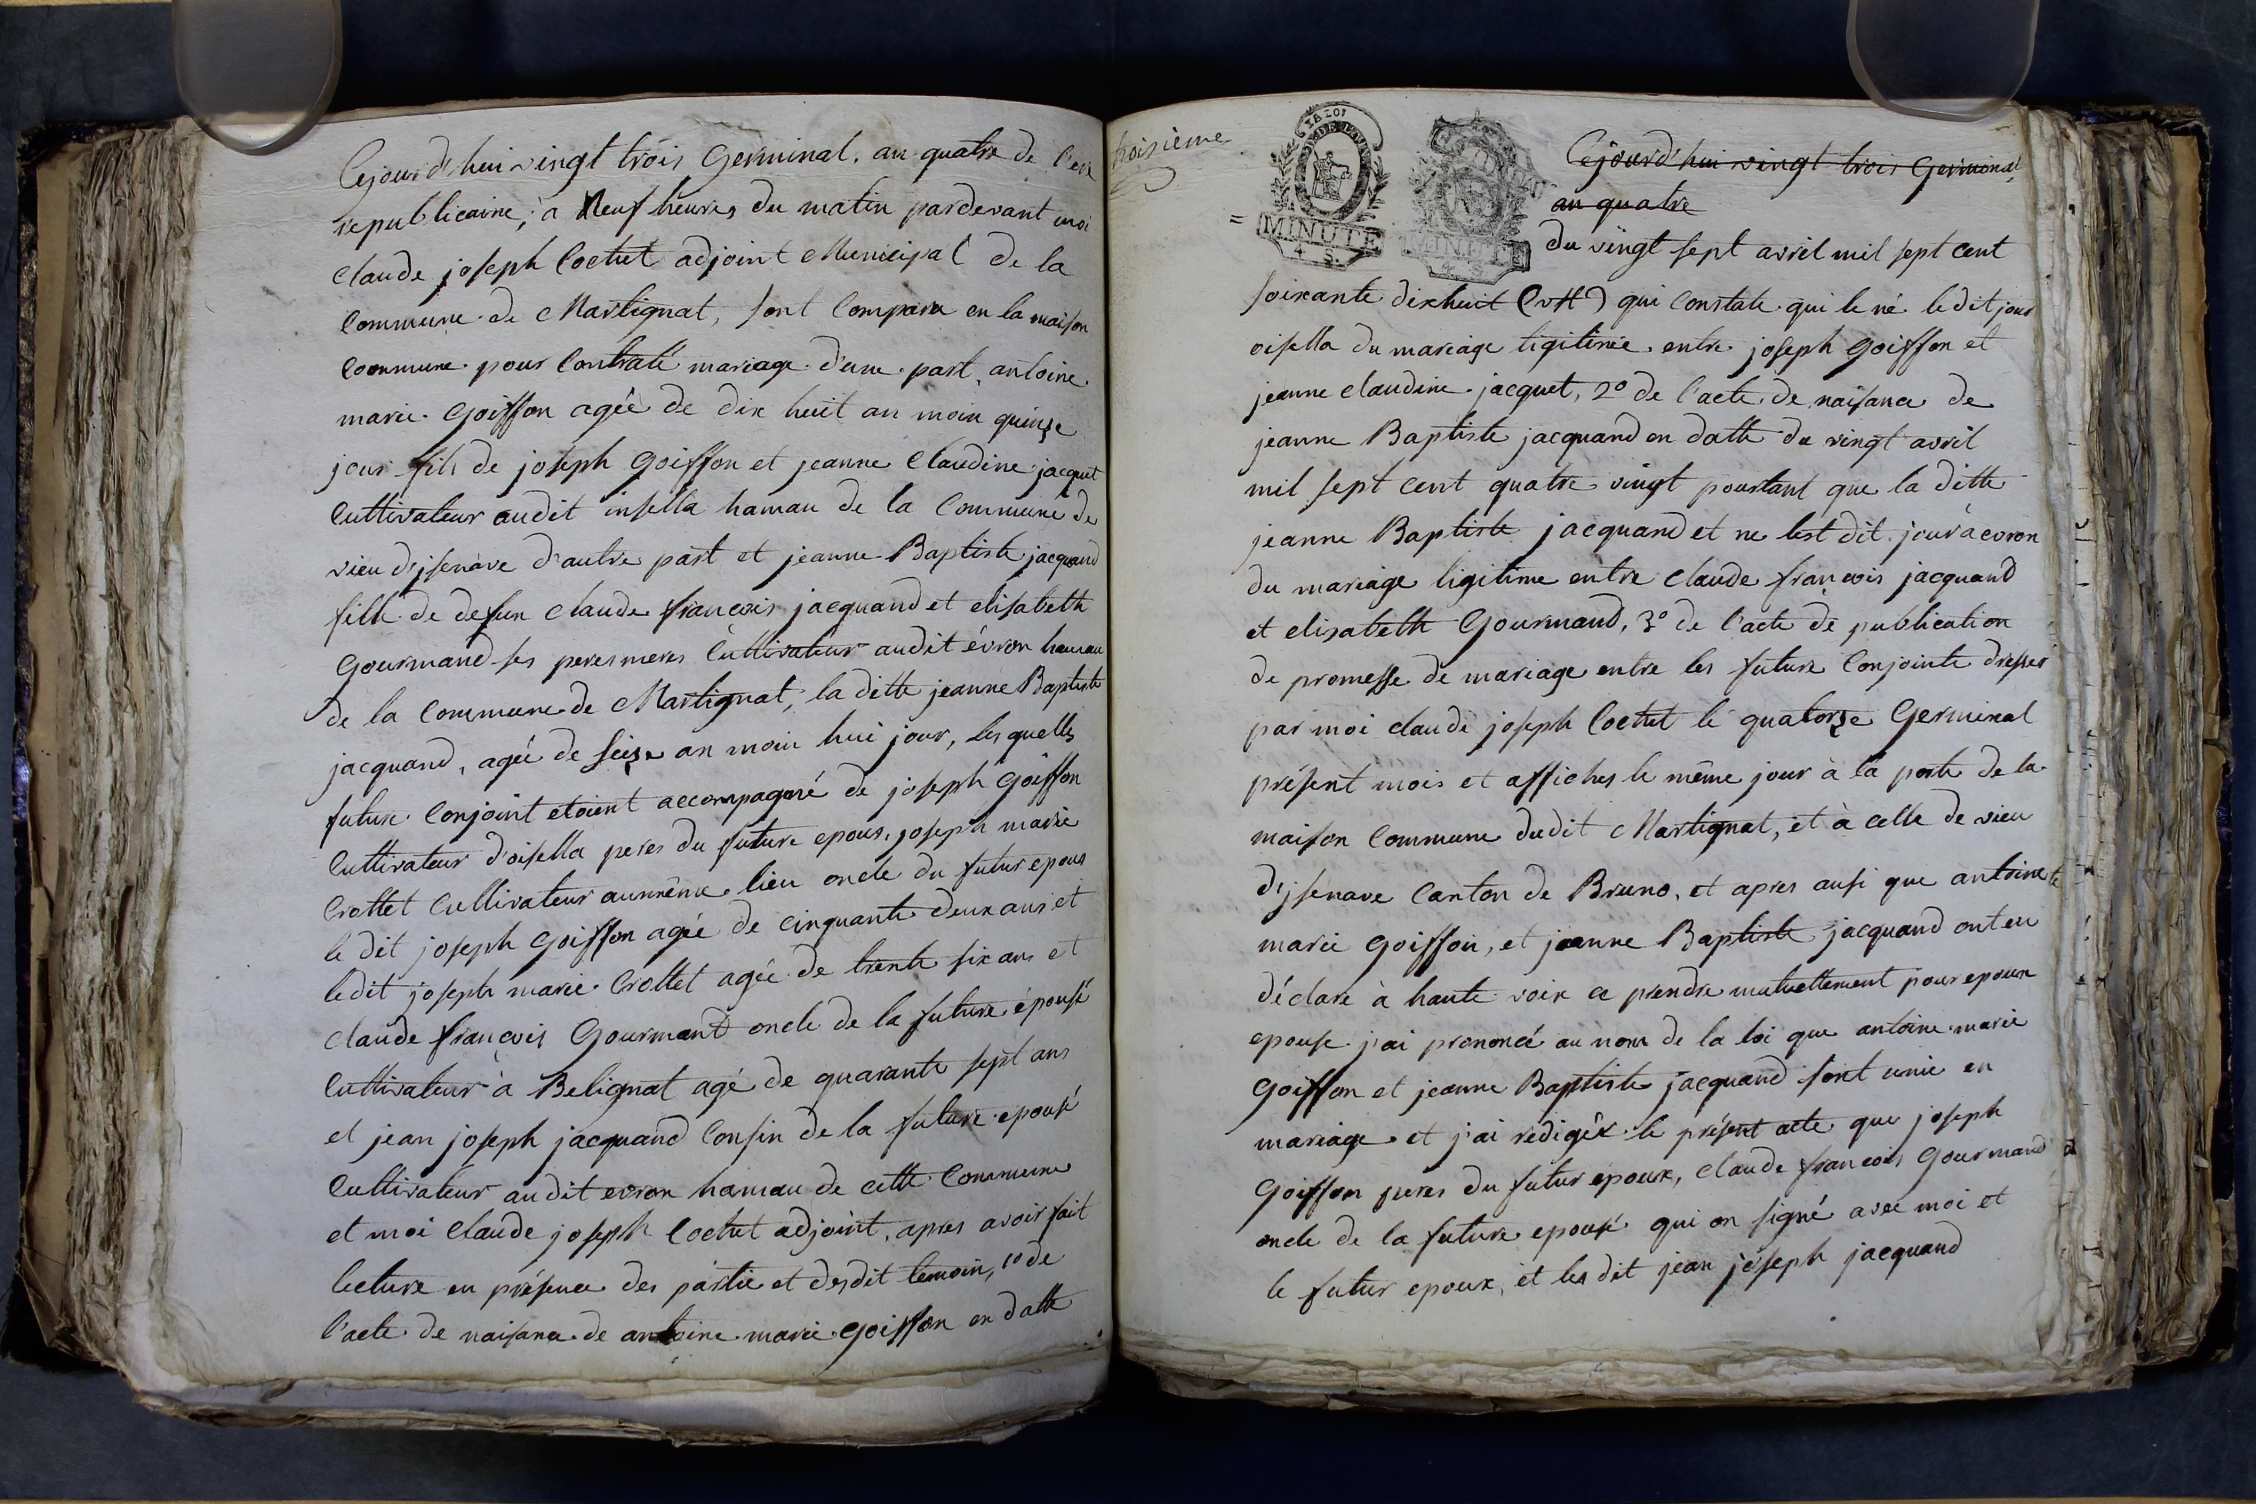 Cejourd'hui vingt trois Germinal, an quatre de l'ere
republicaine, a Neuf heures du matin pardevant moi
claude joseph Cochet adjoint Municipal de la
commune de Martignat, sont Comparu en la maison
commune pour Contraté mariage d'une part, antoine
marie Goiffon agée de dix huit an moin quinze
jour fils de joseph Goiffon et jeanne Claudine jacquet
Cultivateur audit insella hamau de la Commune de
vieu d'jsenave d'autre part et jeanne Baptiste jacquand
fille de defun claude francois jacquand et elisabeth
Gourmand ses peres meres Cultivateur audit évron hamau
de la Commune de Martignat, la ditte jeanne Baptiste
jacquand, agée de seize an moin hui jour, les quelles
future Conjoint etoient accompagné de joseph Goiffon
Cultivateur d'oisella peres du future epous, joseph marie
Crottet Cultivateur aumême lieu oncle du futur epous
le dit joseph Goiffon agée de cinquante deux ans et
ledit joseph marie Crottet agée de trente six ans et
claude francois Gourmant oncle de la future épousé
Cultivateur à Belignat agé de quarante sept ans
et jean joseph jacquand Consin de la future epousé
Cultivateur audit evron hamau de cette Commune
et moi Claude joseph Cochet adjoint, apres avoir fait
lecture en présence des partie et desdit temoin, 1º de
l'acte de naisance de antoine marie Goiffon en datte
troisieme
18201
MINUTE
4 S.
MINUTE
4 S.
Cejourd'hui vingt trois Germinal,
an quatre
=
du vingt sept avril mil sept cent
soixante dixhuit (vst) qui constate qui le né le dit jour
oisella du mariage ligitimée entre joseph Goiffon et
jeanne claudine jacquet, 2º de l'acte de naisance de
jeanne Baptiste jacquand en datte du vingt avril
mil sept cent quatre vingt pourtant que la ditte
jeanne Baptiste jacquand et ne lest dit jour à evron
du mariage ligitime entre claude francois jacquand
et elisabeth Gourmand, 3º de l'acte de publication
de promesse de mariage entre les future Conjointe dressés
par moi claude joseph Cochet le quatorze Germinal
présent mois et affiches le même jour à la porte de la
maison Commune dudit Martignat, et à celle de vieu
d'jsenave Canton de Breno, et apres ausi que antoine
marie Goiffon, et jeanne Baptiste jacquand ont eu
déclare à haute voix ce prendre mutuellement pour epoux
epouse j'ai prononcé au nom de la loi que antoine marie
Goiffon et jeanne Baptiste jacquand sont unie en
mariage et j'ai rédigér le présent acte que joseph
Goiffon peres du futur époux, Claude francois Gourmand
oncle de la future epousé qui on signé avec moi et
le futur epoux, et les dit jean joseph jacquand